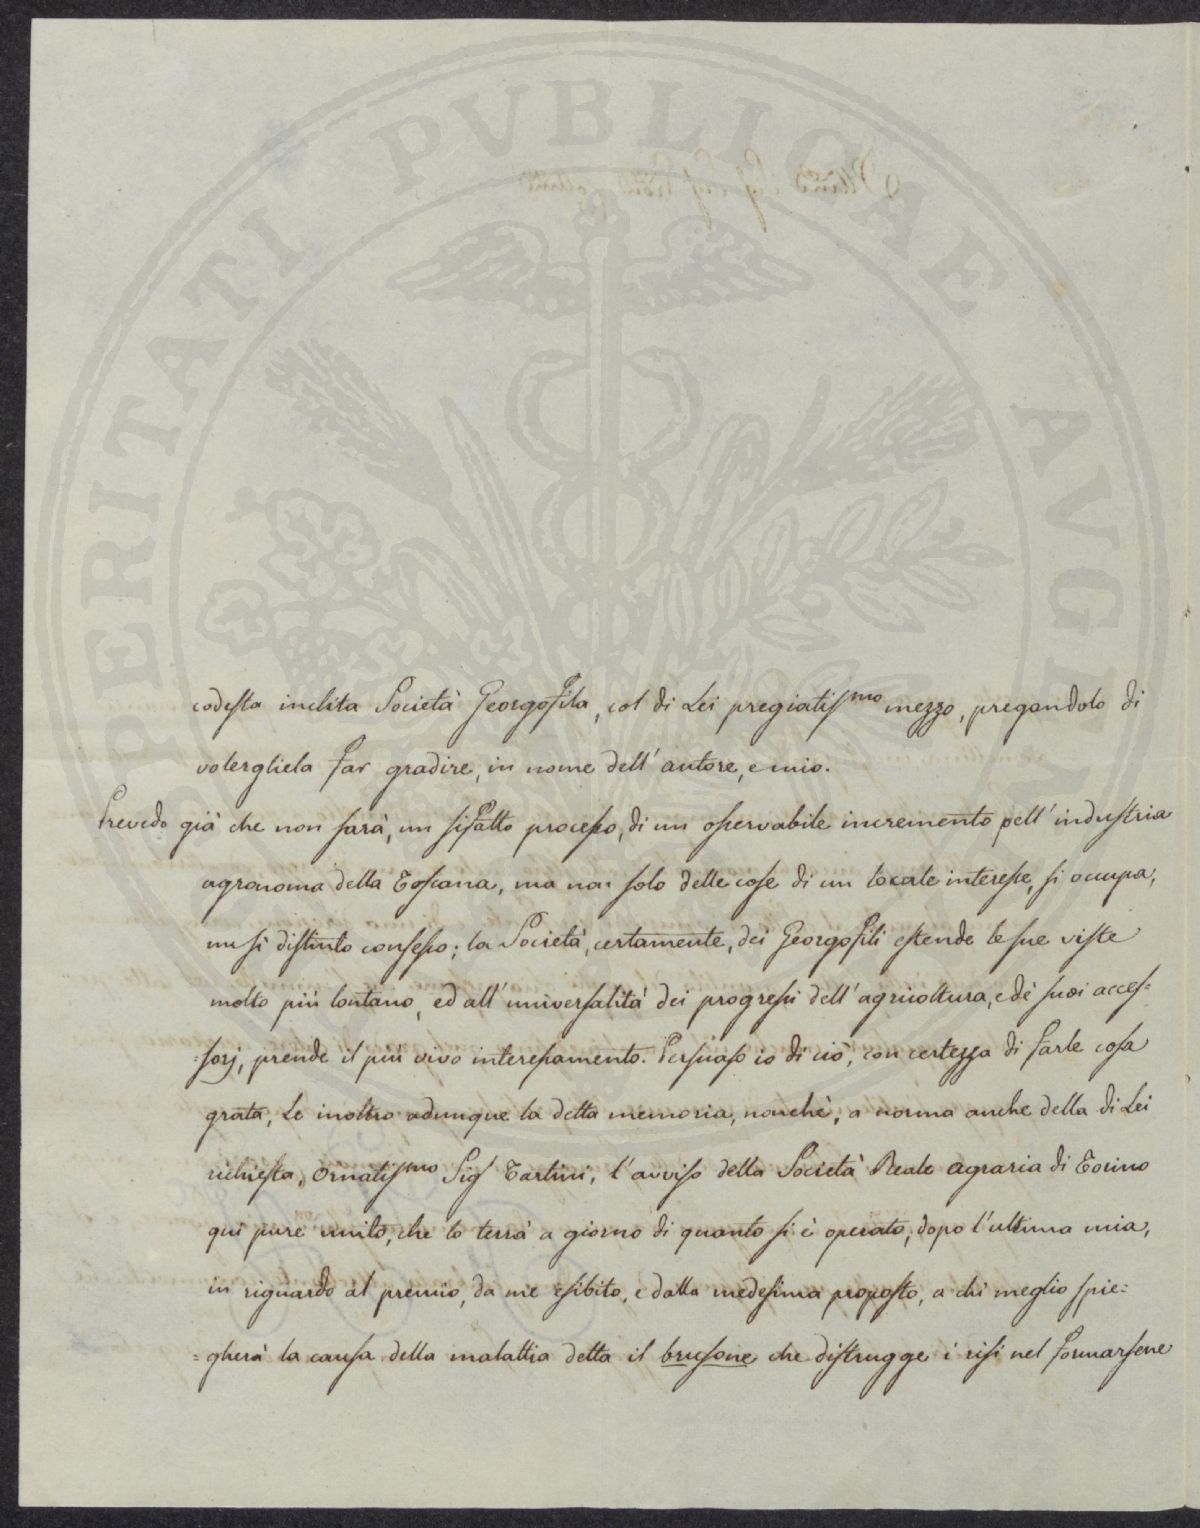 PROSPERITATI PVBLICAE AVGENDAE
codesta inclita Società Georgofila, col di Lei pregiatis.mo mezzo, pregandolo di
volergliela far gradire, in nome dell'autore, e mio.
Prevedo già che non sarà, un sifatto processo, di un osservabile incremento pell'industria
agronoma della Toscana, ma non solo delle cose di un locale interesse, si occupa,
un si distinto consesso; la Società, certamente, dei Georgofili estende le sue viste
molto più lontano, ed all'universalità dei progressi dell'agricoltura, e dè suoi acces=
=sorj, prende il più vivo interessamento. Persuaso io di ciò, con certezza di farle cosa
grata, Le inoltro adunque la detta memoria, nonchè, a norma anche della di Lei
richiesta, Ornatis.mo Sig Tartini, l'avviso della Società Reale agraria di Torino
quì pure unito, che lo terrà a giorno di quanto si è operato, dopo l'ultima mia,
in riguardo al premio, da me esibito, e dalla medesima proposto, a chi meglio spie=
=gherà la causa della malattia detta il brusone che distrugge i risi nel formarsene